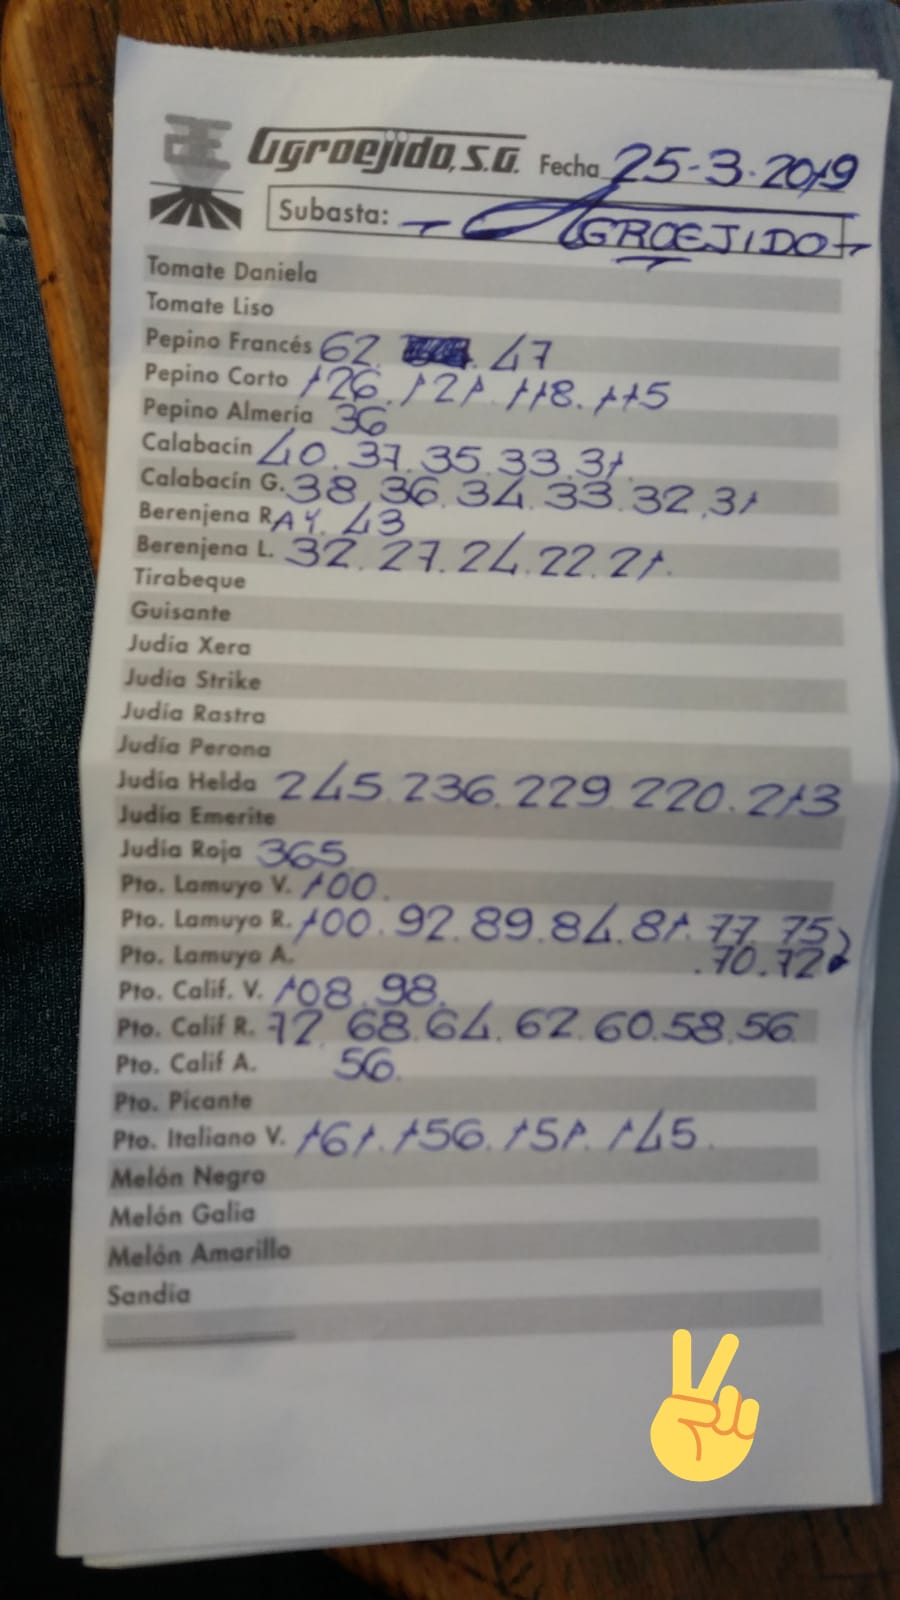 Agroejido, S.A. Fecha 25-3-2019
Subasta: - AGROEJIDO -
Tomate Daniela
Tomate Liso
Pepino Francés 62. 47
Pepino Corto 126. 121. 118. 115
Pepino Almería 36
Calabacín 40. 37. 35. 33. 31.
Calabacín G. 38. 36. 34. 33. 32. 31
Berenjena R. 43
Berenjena L. 32. 27. 24. 22. 21.
Tirabeque
Guisante
Judía Xera
Judía Strike
Judía Rastra
Judía Perona
Judía Helda 245. 236. 229. 220. 213
Judía Emerite
Judía Roja 365
Pto. Lamuyo V. 100.
Pto. Lamuyo R. 100. 92. 89. 84. 81. 77. 75
Pto. Lamuyo A. .70.72
Pto. Calif. V. 108. 98.
Pto. Calif R. 72. 68. 64. 62. 60. 58. 56
Pto. Calif A. 56.
Pto. Picante
Pto. Italiano V. 161. 156. 151. 145.
Melón Negro
Melón Galia
Melón Amarillo
Sandía